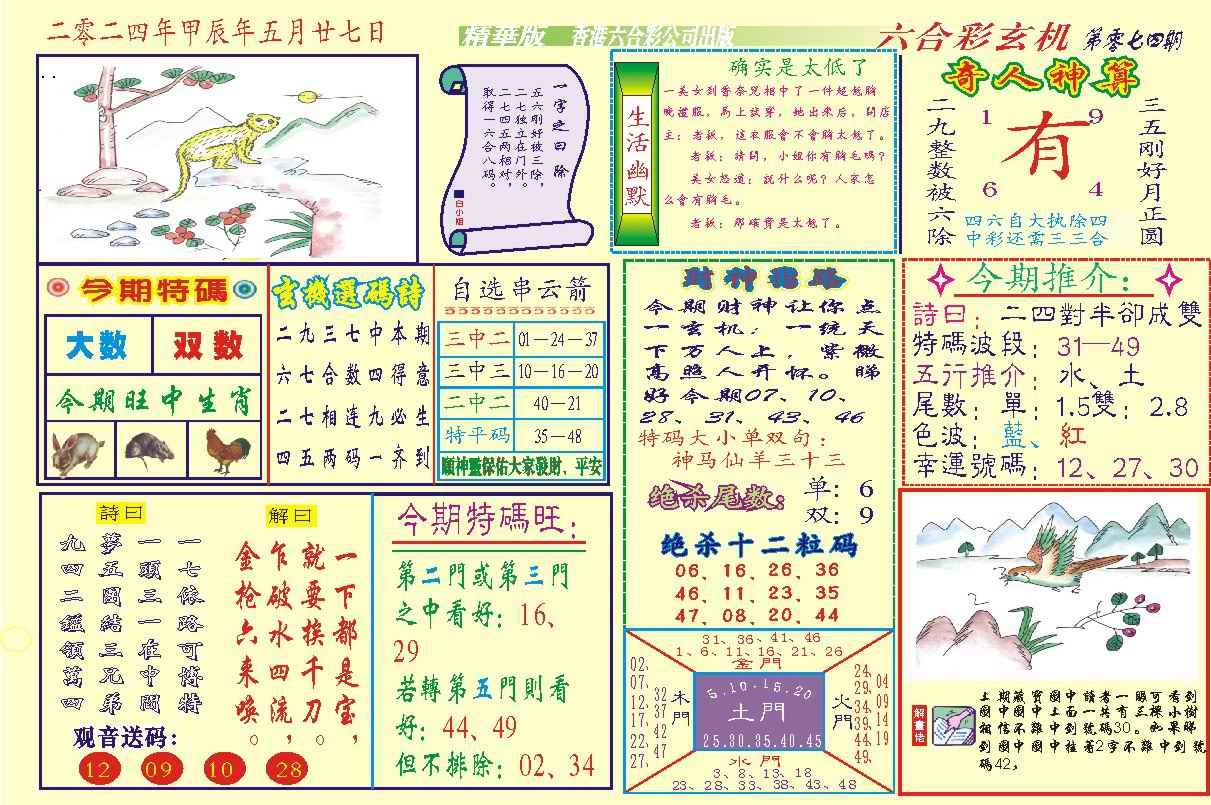 二零二四年甲辰年五月廿七日
精華版 香港六合彩公司出版
六合彩玄机 第零七四期
一字之曰 除
五六刚好被三除，
二七独立在门外。
二七四五两相对，
取得一六合八码。
白小姐
生活幽默
确实是太低了
一美女到香奈兒相中了一件超低胸
晚禮服，馬上試穿，她出來后，問店
主：老板，這衣服會不會胸太低了。
老板：請問，小姐你有胸毛嗎？
美女怒道：說什么呢？人家怎
么會有胸毛。
老板：那確實是太低了。
奇人神算
三五刚好月正圆
二九整数被六除
1 9
有
6 4
四六自大执除四
中彩还需三三合
今期特碼
大数 双数
今期旺中生肖
玄機選碼詩
二九三七中本期
六七合数四得意
二七相连九必生
四五两码一齐到
自选串云箭
三中二 01—24—37
三中三 10—16—20
二中二 40—21
特平码 35—48
願神靈保佑大家發財、平安
今期财神让你点
一玄机：一统天
下万人上，紫微
高照人开怀。睇
好今期07、10、
28、31、43、46
特码大小单双句：
神马仙羊三十三
绝杀尾数：
单：6
双：9
绝杀十二粒码
06、16、26、36
46、11、23、35
47、08、20、44
今期推介：
詩曰：二四對半卻成雙
特碼波段：31—49
五行推介：水、土
尾數：單：1.5雙：2.8
色波：藍、紅
幸運號碼：12、27、30
詩曰
一七依路可博特
一頭三一在中間
夢五團結三兄弟
九四二繼領萬四
解曰
一下都是宝，
就要挨千刀。
乍破水四流，
金枪六来唤。
观音送码：
12 09 10 28
今期特碼旺：
第二門或第三門
之中看好：16、
29
若轉第五門則看
好：44、49
但不排除：02、34
31、36、41、46
1、6、11、16、21、26
金門
02、07、12、17、22、27、
32、37、42、47
木門
5.10.15.20
土門
25.30.35.40.45
火門
24、29、34、39、44、49、
04、09、14、19
水門
3、8、13、18
23、28、33、38、43、48
解畫佬
上期藏寶圖中讀者一眼可看到
圖中圖中上面一共有三棵小樹
相信不難中到號碼30。如果睇
到圖中圖中挂着2字不難中到號
碼42，